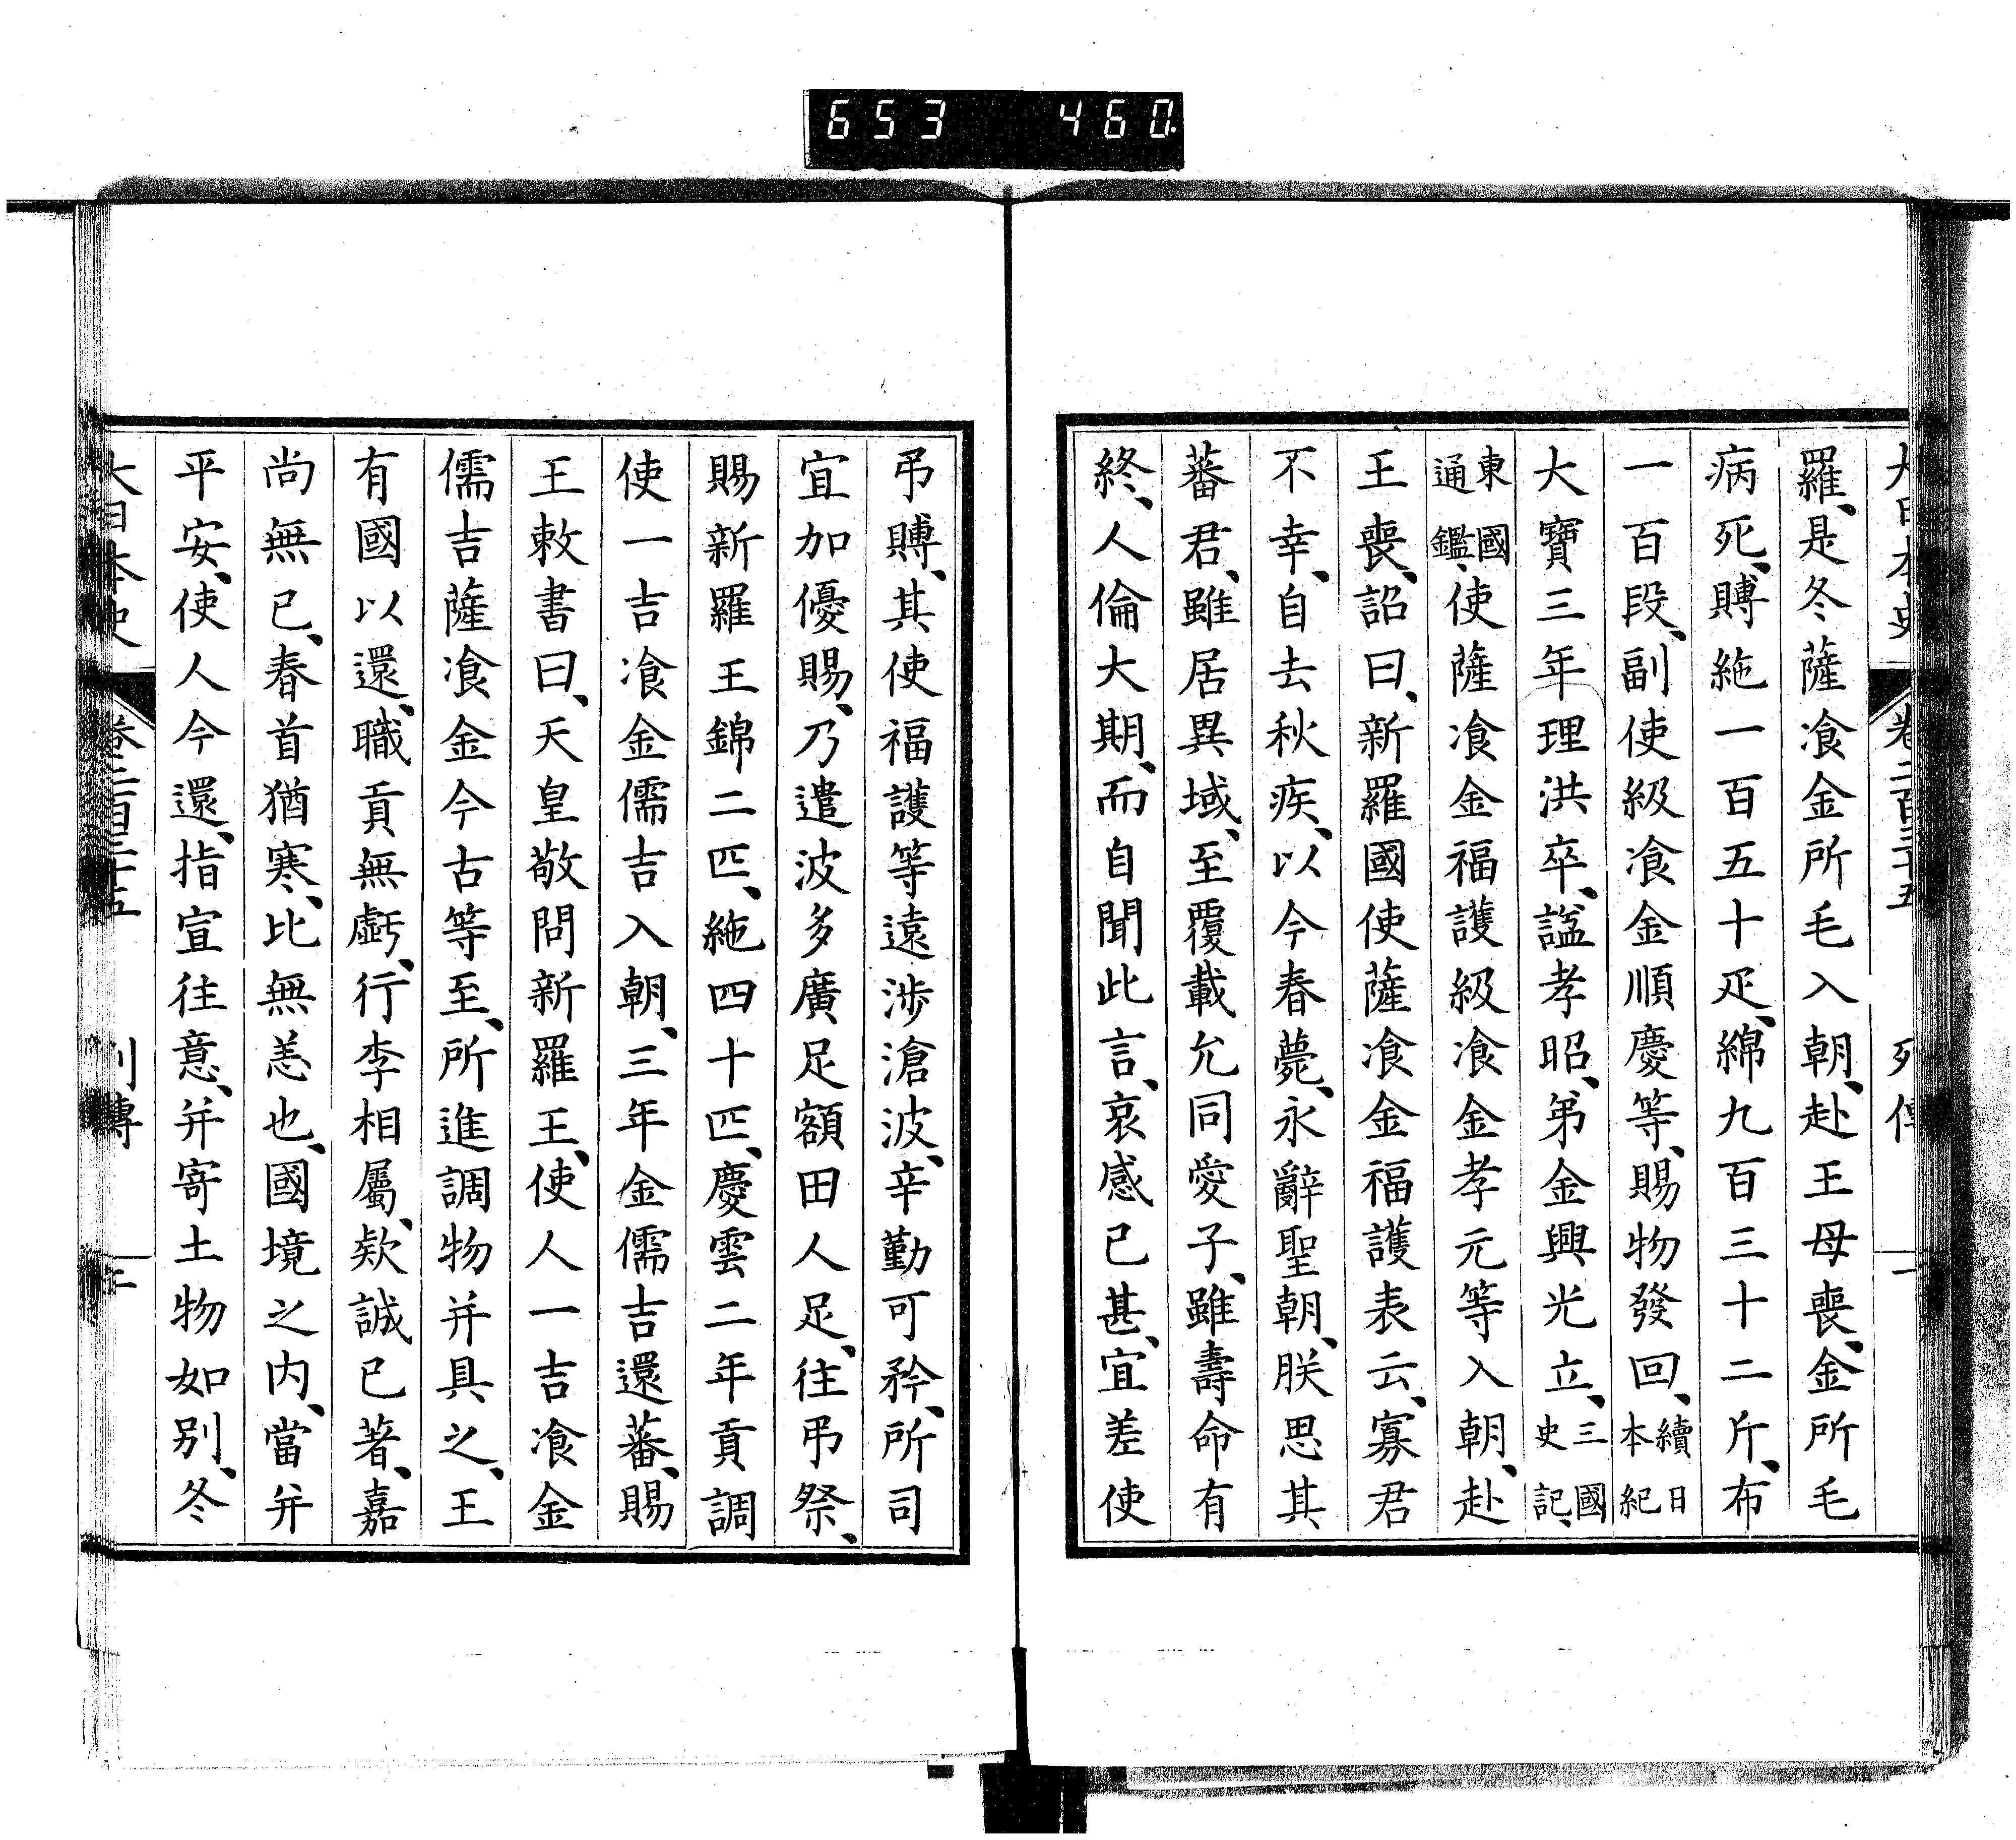 653 460
大日本史 卷二百三十五 列傳
羅、是冬薩飡金所毛入朝、赴王母喪、金所毛
病死、賻絁一百五十疋、綿九百三十二斤、布
一百段、副使級飡金順慶等、賜物發回、續日本紀
大寶三年理洪卒、諡孝昭、弟金興光立、三國史記、
東國通鑑、使薩飡金福護級飡金孝元等入朝、赴
王喪、詔曰、新羅國使薩飡金福護表云、寡君
不幸、自去秋疾、以今春薨、永辭聖朝、朕思其
蕃君、雖居異域、至覆載允同愛子、雖壽命有
終、人倫大期、而自聞此言、哀感已甚、宜差使
弔賻、其使福護等遠涉滄波、辛勤可矜、所司
宜加優賜、乃遣波多廣足額田人足、往弔祭、
賜新羅王錦二匹、絁四十匹、慶雲二年貢調
使一吉飡金儒吉入朝、三年金儒吉還蕃、賜
王敕書曰、天皇敬問新羅王、使人一吉飡金
儒吉薩飡金今古等至、所進調物并具之、王
有國以還、職貢無虧、行李相屬、欵誠已著、嘉
尚無已、春首猶寒、比無恙也、國境之内、當并
平安、使人今還、指宣往意、并寄土物如别、冬
大日本史 卷二百三十五 列傳